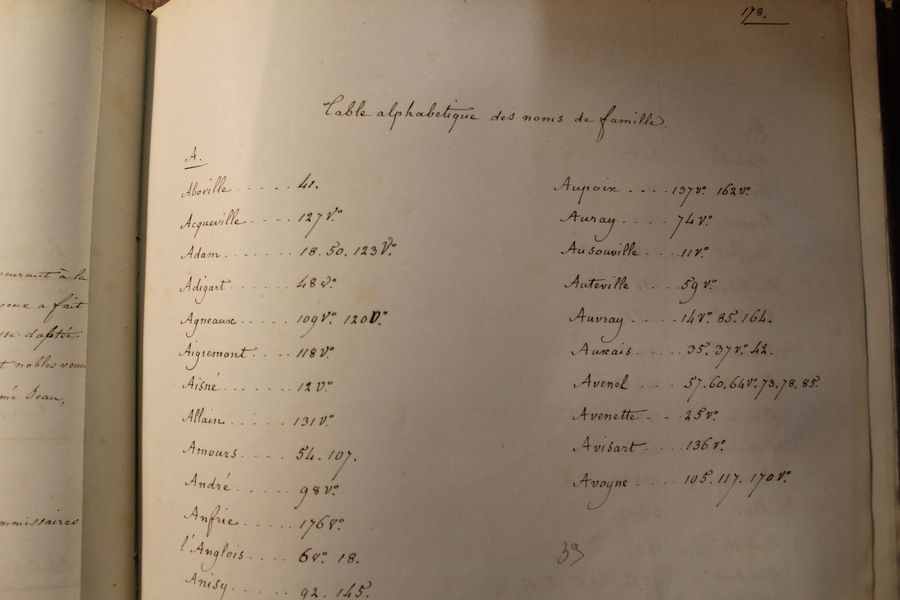 178.
Table alphabetique des noms de famille.
A.
Aboville ..... 41.
Acqueville ..... 127 v°.
Adam ....... 18. 50. 123 V°.
Adigart ...... 48 v°.
Agneaux ..... 109 v°. 120 v°.
Aigremont .... 118 v°.
Aisné ....... 12 v°.
Allain ...... 131 v°.
Amours ..... 54. 107.
André ...... 98 v°.
Anfrie ...... 176 v°.
l'Anglois .... 6 v°. 18.
Anisy ...... 92. 145.
Aupoix .... 137 v°. 162 v°.
Auray ..... 74 v°.
Ausouville .... 11 v°.
Auteville .... 59 v°.
Auvray .... 14 v°. 85. 164.
Auxais .... 35. 37 v°. 42.
Avenel .... 57. 60. 64 v°. 73. 78. 85.
Avenette ... 25 v°.
Avisart .... 136 v°.
Avoyne .... 105. 117. 170 v°.
39
courant à la
a fait
t nobles
mé Jean,
mmissaires